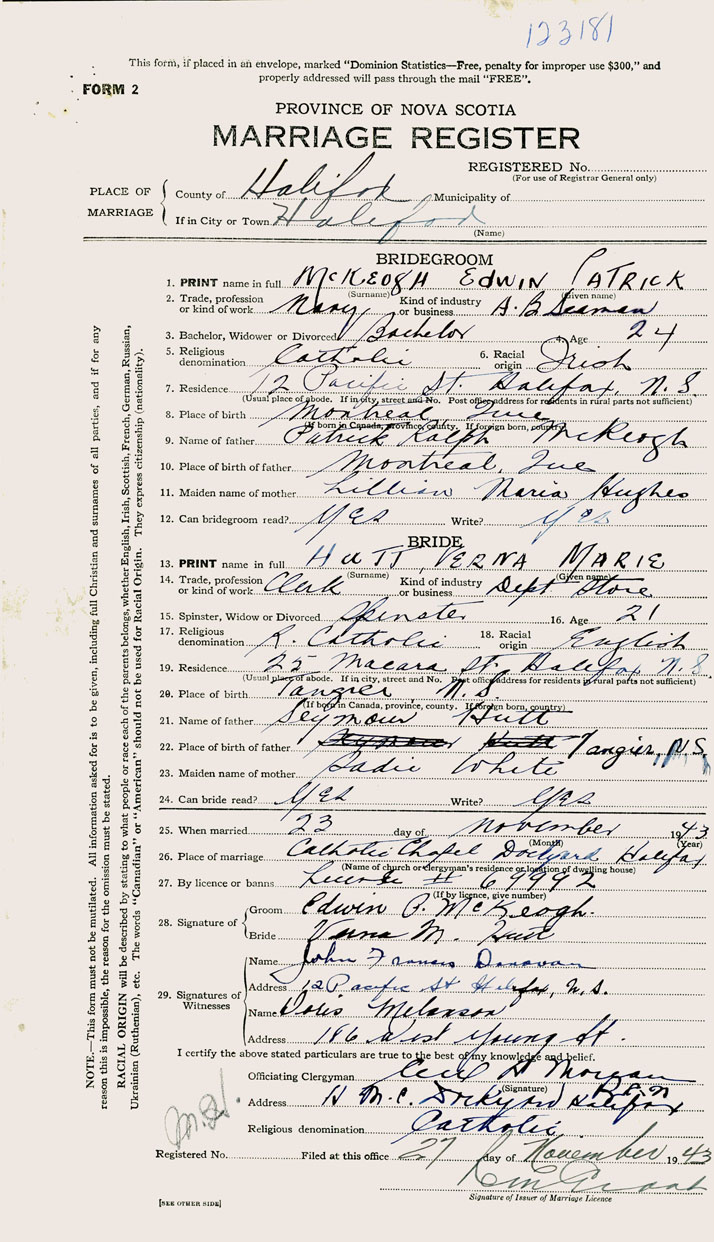 123181
This form, if placed in an envelope, marked "Dominion Statistics—Free, penalty for improper use $300," and
properly addressed will pass through the mail "FREE".
FORM 2
PROVINCE OF NOVA SCOTIA
MARRIAGE REGISTER
REGISTERED No.
(For use of Registrar General only)
PLACE OF MARRIAGE
County of Halifax Municipality of
If in City or Town Halifax
(Name)
BRIDEGROOM
1. PRINT name in full McKEOGH EDWIN PATRICK
(Surname) (Given name)
2. Trade, profession or kind of work Navy Kind of industry or business A.B Seaman
3. Bachelor, Widower or Divorced Bachelor 4. Age 24
5. Religious denomination Catholic 6. Racial origin Irish
7. Residence 12 Pacific St. Halifax, N.S.
(Usual place of abode. If in city, street and No. Post office address for residents in rural parts not sufficient)
8. Place of birth Montreal, Que
(If born in Canada, province, county. If foreign born, country)
9. Name of father Patrick Ralph McKeogh
10. Place of birth of father Montreal, Que
11. Maiden name of mother Lillian Maria Hughes
12. Can bridegroom read? Yes Write? Yes
BRIDE
13. PRINT name in full HUTT, VERNA MARIE
(Surname) (Given name)
14. Trade, profession or kind of work Clerk Kind of industry or business Dept Store
15. Spinster, Widow or Divorced Spinster 16. Age 21
17. Religious denomination R. Catholic 18. Racial origin English
19. Residence 22 Macara St. Halifax N.S.
(Usual place of abode. If in city, street and No. Post office address for residents in rural parts not sufficient)
20. Place of birth Tangier N.S.
(If born in Canada, province, county. If foreign born, country)
21. Name of father Seymour Hutt
22. Place of birth of father Seymour Hutt Tangier, N.S.
23. Maiden name of mother Sadie White
24. Can bride read? Yes Write? Yes
25. When married 23 day of November 1943
(Month) (Year)
26. Place of marriage Catholic Chapel Dockyard Halifax
(Name of church or clergyman's residence or location of dwelling house)
27. By licence or banns License # 69992
(If by licence, give number)
28. Signature of
Groom Edwin P. McKeogh.
Bride Verna M. Hutt
29. Signatures of Witnesses
Name John Francis Donovan
Address 12 Pacific St Halifax, N.S.
Name Doris Melanson
Address 186 West Young St.
I certify the above stated particulars are true to the best of my knowledge and belief.
Officiating Clergyman Cecil A Morgan
(Signature)
Address H.M.C. Dockyard Halifax
Religious denomination Catholic
Registered No. Filed at this office 27 day of November 1943
Signature of Issuer of Marriage Licence
[SEE OTHER SIDE]
NOTE.—This form must not be mutilated. All information asked for is to be given, including full Christian and surnames of all parties, and if for any
reason this is impossible, the reason for the omission must be stated.
RACIAL ORIGIN will be described by stating to what people or race each of the parents belongs, whether English, Irish, Scottish, French, German, Russian,
Ukrainian (Ruthenian), etc. The words "Canadian" or "American" should not be used for Racial Origin. They express citizenship (nationality).